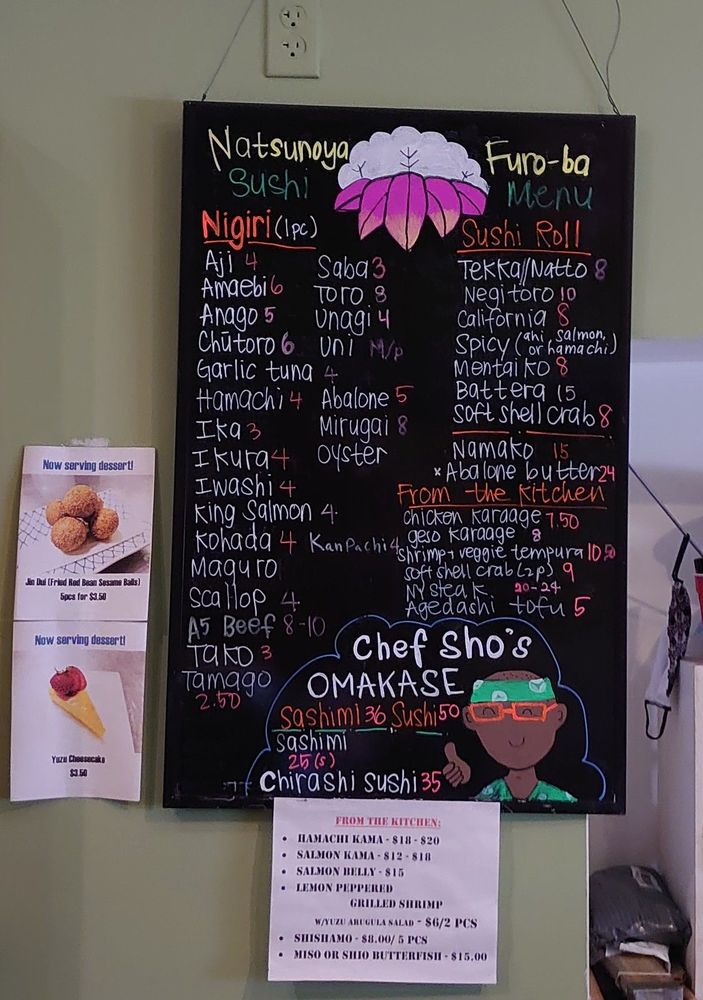 Natsunoya
Sushi
Furo-ba
Menu
Nigiri (1pc)
Aji 4
Amaebi 6
Anago 5
Chūtoro 6
Garlic tuna 4
Hamachi 4
Ika 3
Ikura 4
Iwashi 4
King Salmon 4
Kohada 4
Maguro
Scallop 4
A5 Beef 8-10
Tako 3
Tamago
2.50
Saba 3
Toro 8
Unagi 4
Uni M/p
Abalone 5
Mirugai 8
Oyster
Kanpachi 4
Sushi Roll
Tekka//Natto 8
Negitoro 10
California 8
Spicy (ahi, salmon, or hamachi)
Mentaiko 8
Battera 15
Soft shell crab 8
Namako 15
*Abalone butter 24
From the Kitchen
chicken karaage 7.50
geso karaage 8
shrimp + veggie tempura 10.50
soft shell crab (2p) 9
NY Steak 20-24
Agedashi tofu 5
Chef Sho's
OMAKASE
Sashimi 36 Sushi 50
Sashimi
25 (s)
Chirashi Sushi 35
Now serving dessert!
Jin Dui (Fried Red Bean Sesame Balls)
5pcs for $3.50
Now serving dessert!
Yuzu Cheesecake
$3.50
FROM THE KITCHEN:
• HAMACHI KAMA - $18 - $20
• SALMON KAMA - $12 - $18
• SALMON BELLY - $15
• LEMON PEPPERED
GRILLED SHRIMP
W/YUZU ARUGULA SALAD - $6/2 PCS
• SHISHAMO - $8.00/ 5 PCS
• MISO OR SHIO BUTTERFISH - $15.00